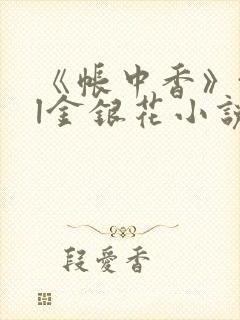 《帳中香》
|金銀花小説
段愛香